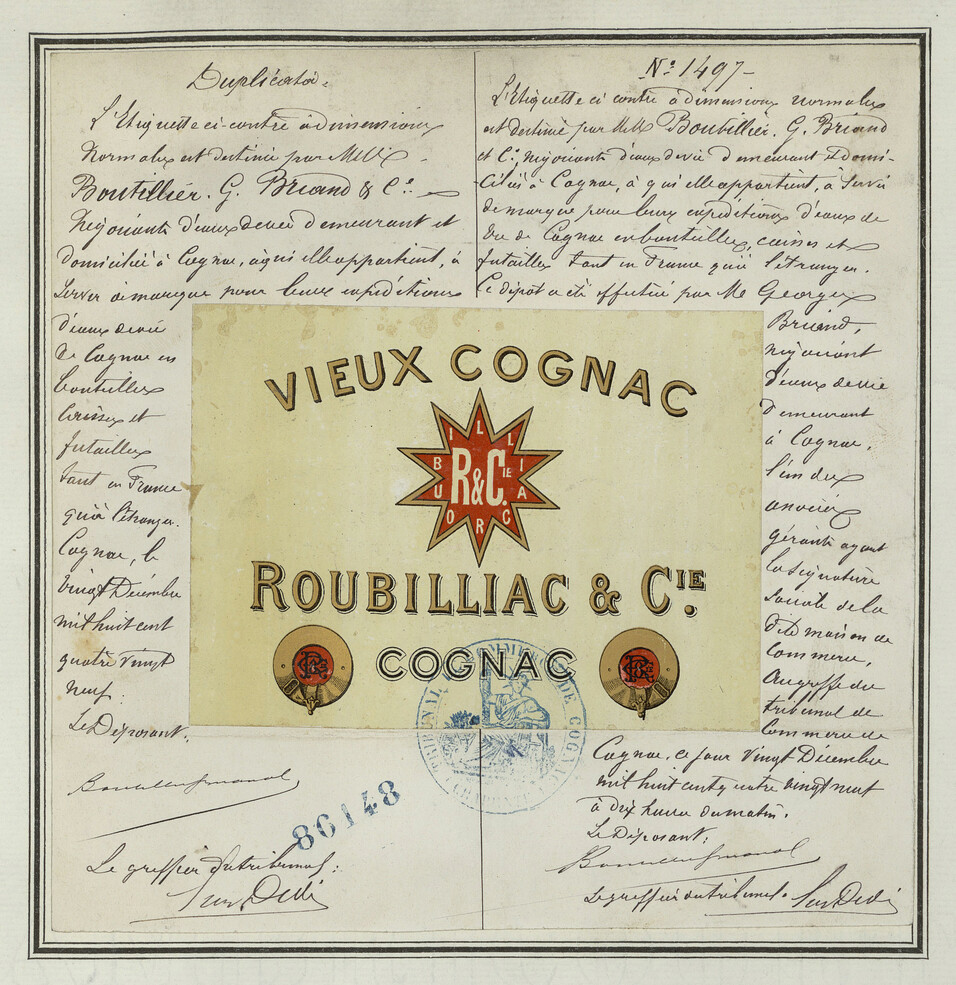 Duplicata.
L'Etiquette ci-contre à dimensions
normales est destinée par MM
Boutillier. G. Briand & Cie
Négociants d'eaux de vie demeurant et
domiciliés à Cognac, à qui elle appartient, à
servir de marque pour leurs expéditions
d'eaux de vie
de Cognac en
bouteilles
caisses et
futailles
tant en France
qu'à l'étranger.
Cognac, le
vingt Décembre
mil huit cent
quatre vingt
neuf.
Le Déposant.
Le greffier du tribunal:
No 1497
L'Etiquette ci contre à dimensions normales
est destinée par MM Boutillier. G. Briand
et Cie négociants d'eaux de vie demeurant & domi-
ciliés à Cognac, à qui elle appartient, à servir
de marque pour leurs expéditions d'eaux de
vie de Cognac en bouteilles, caisses et
futailles tant en France qu'à l'étranger.
Ce dépôt a été effectué par Mr Georges
Briand,
négociant
d'eaux de vie
demeurant
à Cognac,
l'un des
associés
gérants ayant
la signature
sociale de la
dite maison de
Commerce,
Au greffe du
tribunal de
Commerce de
Cognac, ce jour vingt Décembre
mil huit cent quatre vingt neuf
à dix heures du matin.
Le Déposant:
Le greffier du tribunal.
VIEUX COGNAC
ROUBILLIAC
R&CIE
ROUBILLIAC & CIE.
COGNAC
TRIBUNAL DE COMMERCE DE COGNAC
86148